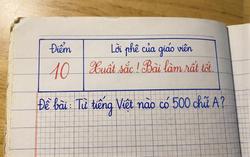 Điểm
Lời phê của giáo viên
10
Xuất sắc! Bài làm rất tốt.
Đề bài: Từ tiếng Việt nào có 500 chữ A?